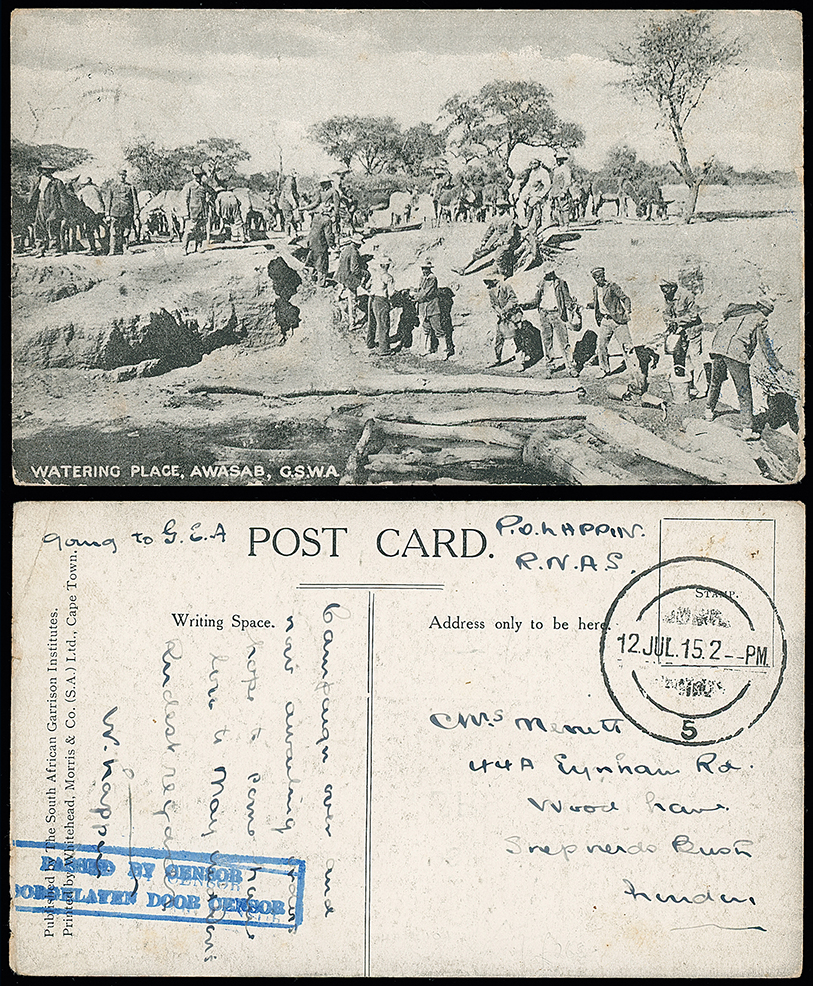 WATERING PLACE, AWASAB, G.S.W.A.
going to G.E.A
POST CARD.
P.O. LAPPIN.
R.N.A.S.
STAMP.
Writing Space.
Address only to be here.
12 JUL. 15. 2--PM
5
Mrs Merritt
44A Eynham Rd.
Wood Lane
Sheperds Bush
London
Campaign over and
now awaiting
hope to come home
love to May
Kindest regards
W. Lappin
PASSED BY CENSOR
DOORGELATEN DOOR CENSOR
Published by The South African Garrison Institutes.
Printed by Whitehead, Morris & Co. (S.A.) Ltd., Cape Town.